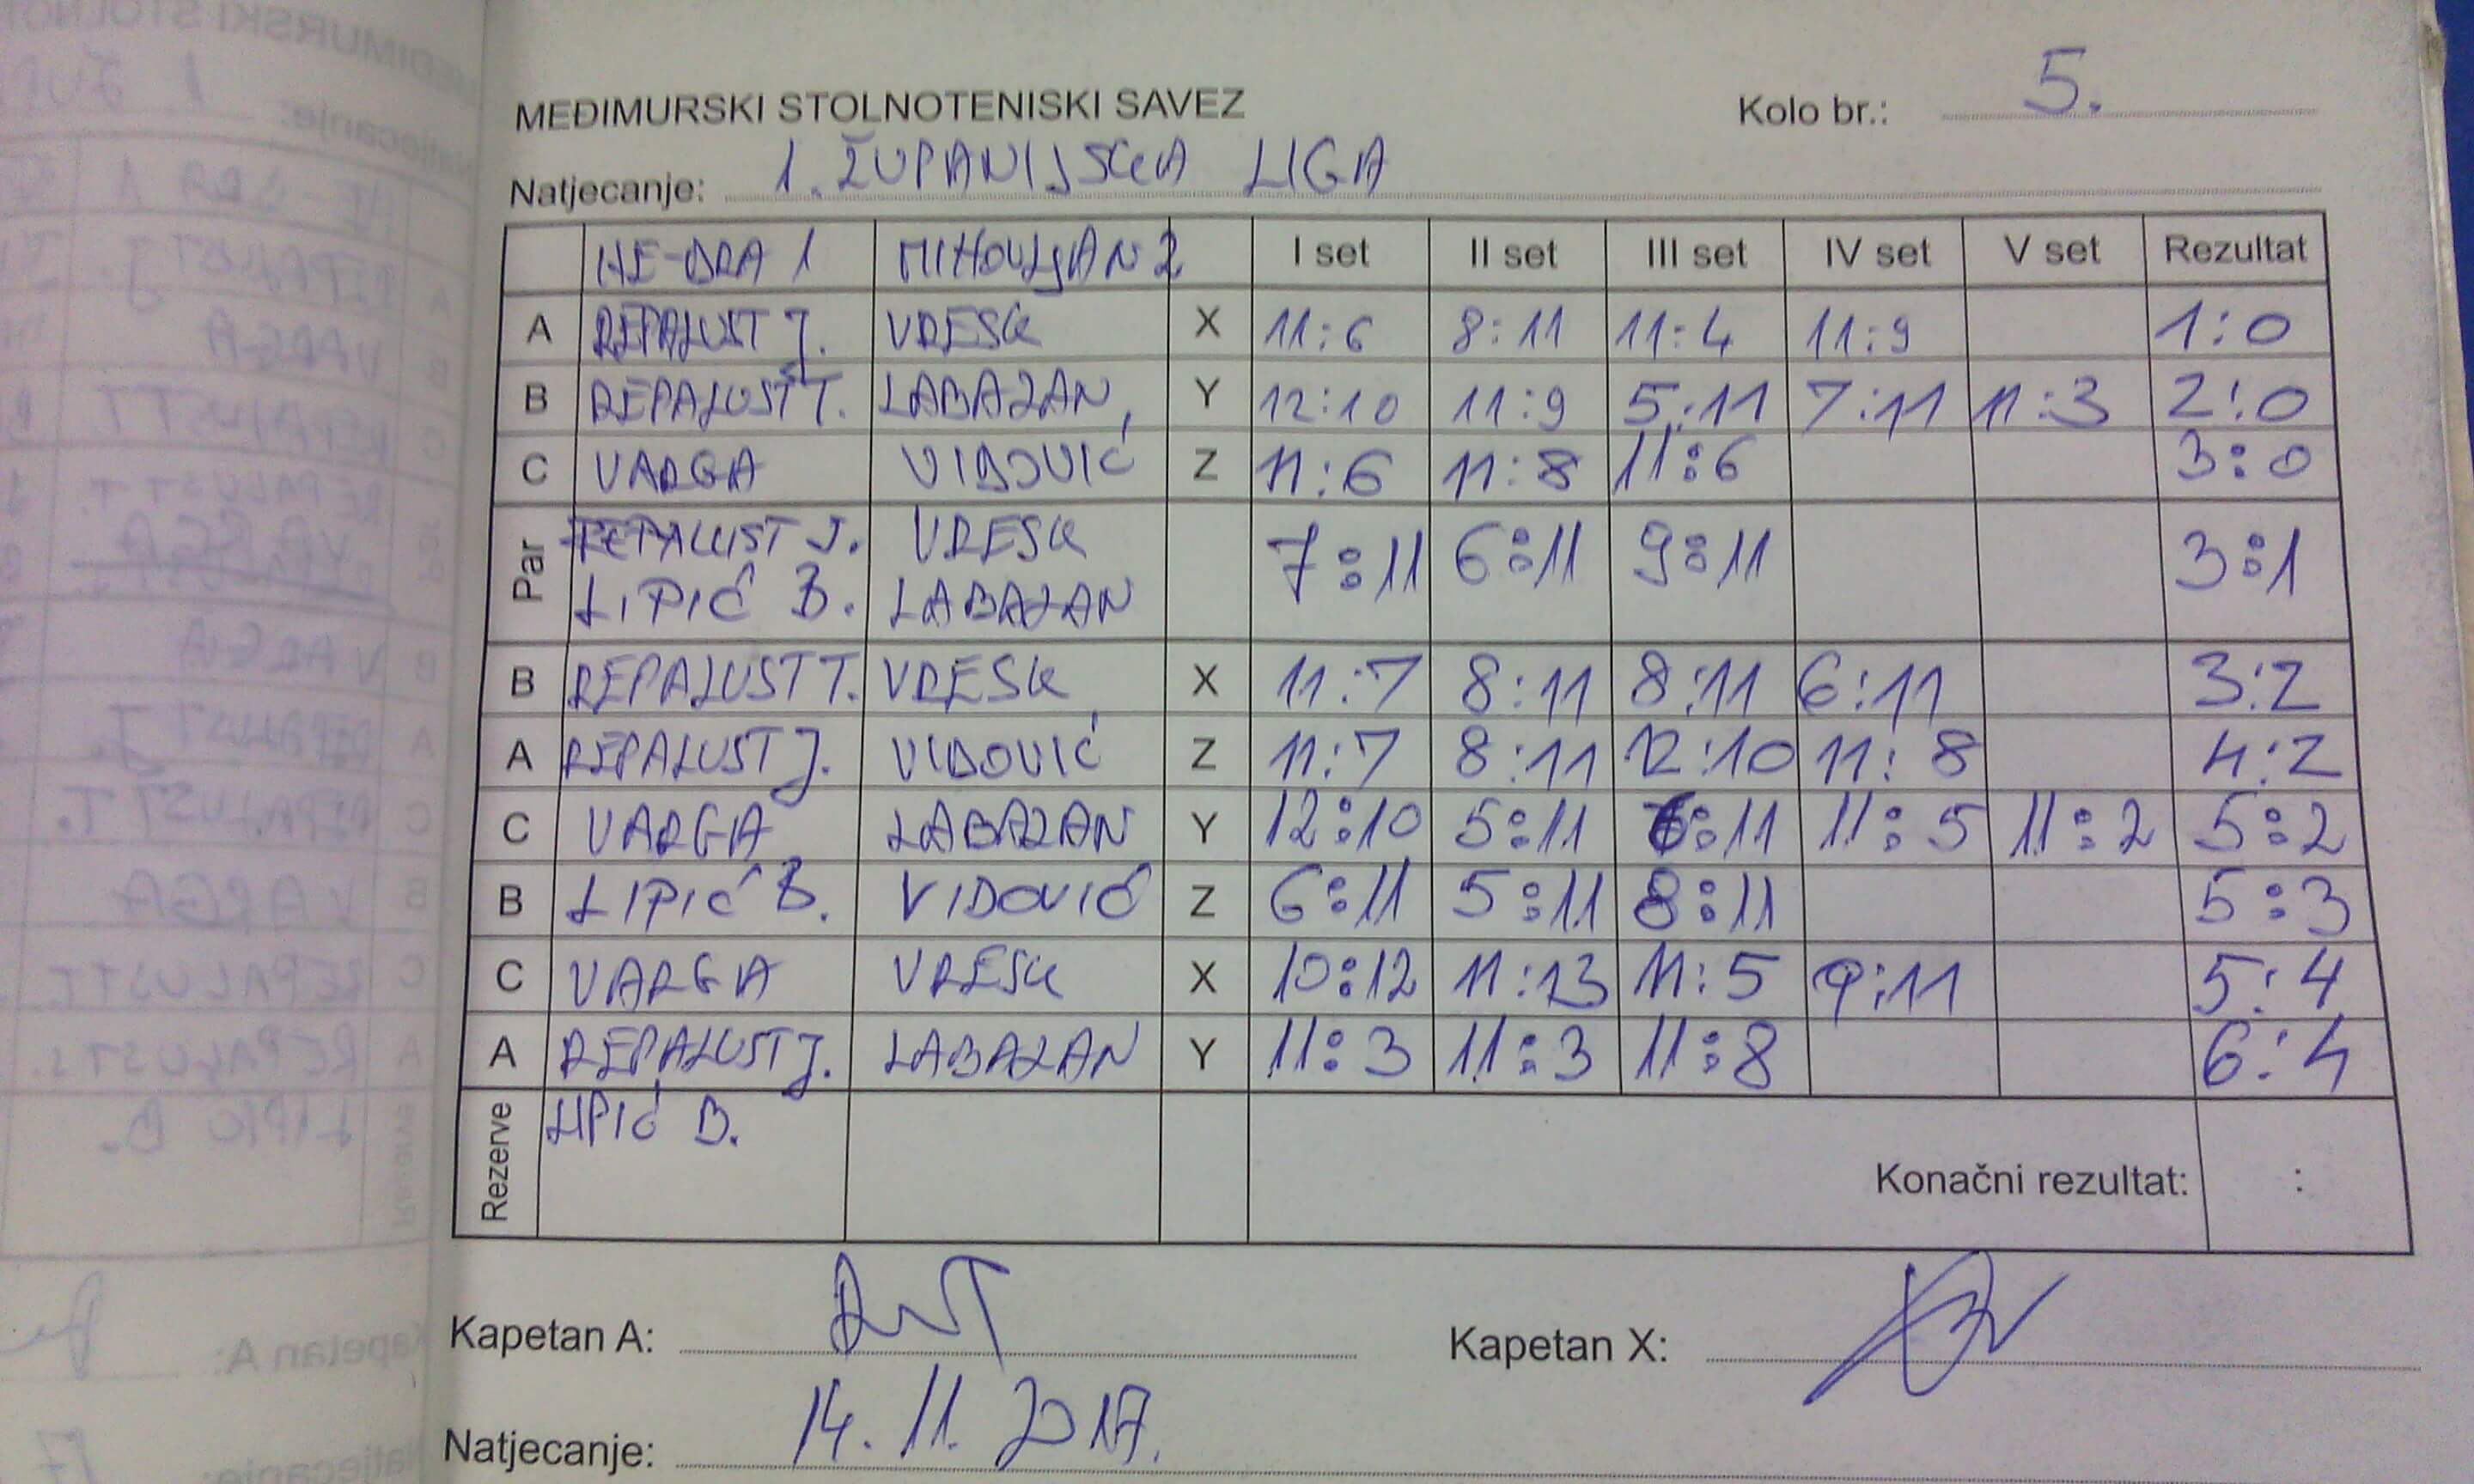 MEĐIMURSKI STOLNOTENISKI SAVEZ
Kolo br.: 5.
Natjecanje: 1. ŽUPANIJSKA LIGA
HE-DRA 1 MIHOVLJAN 2 I set II set III set IV set V set Rezultat
A REPALUST J. VRESK X 11:6 8:11 11:4 11:9 1:0
B REPALUST T. LABAZAN Y 12:10 11:9 5:11 7:11 11:3 2:0
C VARGA VIDOVIĆ Z 11:6 11:8 11:6 3:0
Par REPALUST J. VRESK 7:11 6:11 9:11 3:1
LIPIĆ B. LABAZAN
B REPALUST T. VRESK X 11:7 8:11 8:11 6:11 3:2
A REPALUST J. VIDOVIĆ Z 11:7 8:11 12:10 11:8 4:2
C VARGA LABAZAN Y 12:10 5:11 6:11 11:5 11:2 5:2
B LIPIĆ B. VIDOVIĆ Z 6:11 5:11 8:11 5:3
C VARGA VRESK X 10:12 11:13 11:5 9:11 5:4
A REPALUST J. LABAZAN Y 11:3 11:3 11:8 6:4
Rezerve LIPIĆ B.
Konačni rezultat: :
Kapetan A:
Kapetan X:
Natjecanje: 14. 11. 2017.